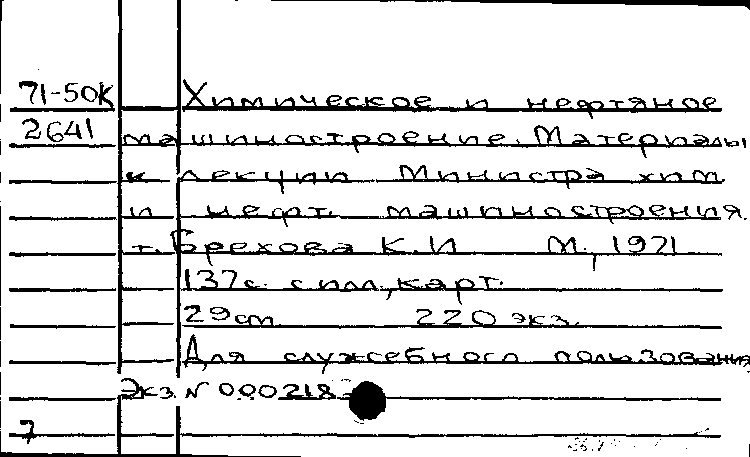 71-50К Химическое и нефтяное
2641 машиностроение. Материалы
к лекции Министра хим.
и нефт. машиностроения.
т. Брехова К.И М., 1971
137с. с илл, карт.
29см 220 экз.
Для служебного пользования
Экз. N 000218
7